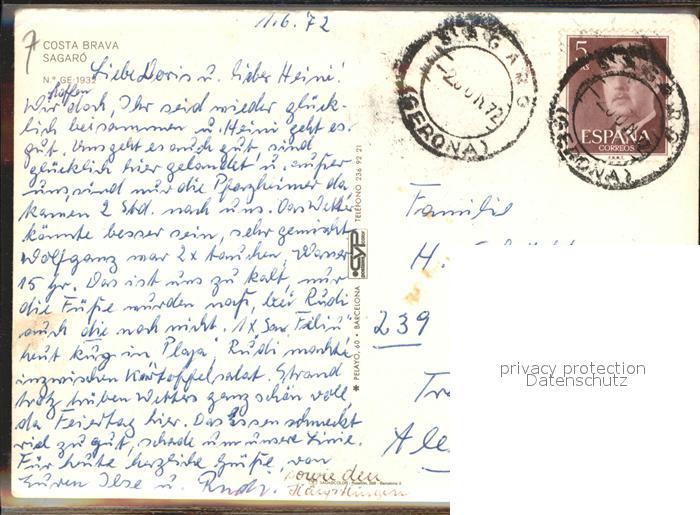 1.6.72
7
COSTA BRAVA
SAGARÓ
N.° GE-1932
Liebe Doris u. lieber Heini!
Wir hoffen doch, Ihr seid wieder glück-
lich beisammen u. Heini geht es
gut. Uns geht es auch gut, sind
glücklich hier gelandet u. außer
uns, sind nur die Pforzheimer da
kamen 2 Std. nach uns. Das Wetter
könnte besser sein, sehr gemischt
Wolfgang war 2x tauchen, Wasser
15 gr. Das ist uns zu kalt, nur
die Füße wurden naß, bei Rudi
auch die noch nicht. 1x San Feliu
heut in Playa, Rudi machte
inzwischen Kartoffelsalat. Strand
trotz trüben Wetters ganz schön voll,
da Feiertag hier. Das Essen schmeckt
viel zu gut, schade um unsere Linie.
Für heute herzliche Grüße, von
Euren Ilse u. Rudi. sowie den
PELAYO, 60 • BARCELONA TELEFONO 236 92 21
CYP
S'AGARO
-2 JUN 72
(GERONA)
5
ESPAÑA
CORREOS
F.N.M.T.
S'AGARO
(GERONA)
Familie
H.
239
privacy protection
Datenschutz